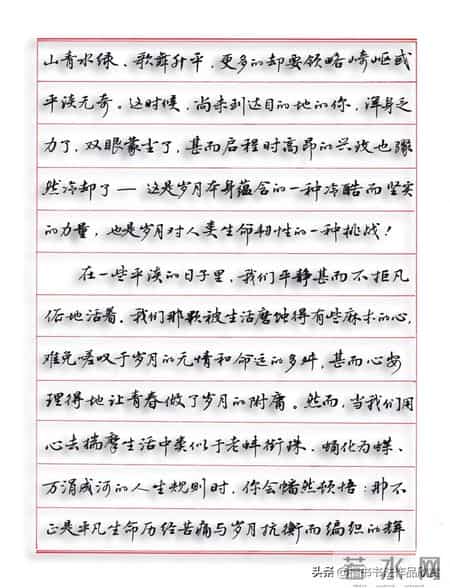 山青水绿、歌舞升平，更多的却要领略崎岖或
平淡无奇。这时候，尚未到达目的地的你，浑身乏
力了，双眼蒙尘了，甚而启程时高昂的兴致也骤
然冷却了——这是岁月本身蕴含的一种冷酷而坚实
的力量，也是岁月对人类生命韧性的一种挑战！
在一些平淡的日子里，我们平静甚而不拒凡
俗地活着。我们那颗被生活磨蚀得有些麻木的心，
难免嗟叹于岁月的无情和命运的多舛，甚而心安
理得地让青春做了岁月的附庸。然而，当我们用
心去揣摩生活中类似于老蚌衔珠、蛹化为蝶、
万涓成河的人生规则时，你会幡然顿悟：那不
正是平凡生命历经苦痛与岁月抗衡而编织的辉
头条
若水网